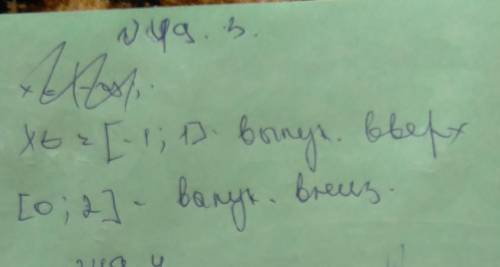 № 49. 3.
x ∈ = [-1; 1] - выпук. вверх
[0; 2] - выпук. вниз.